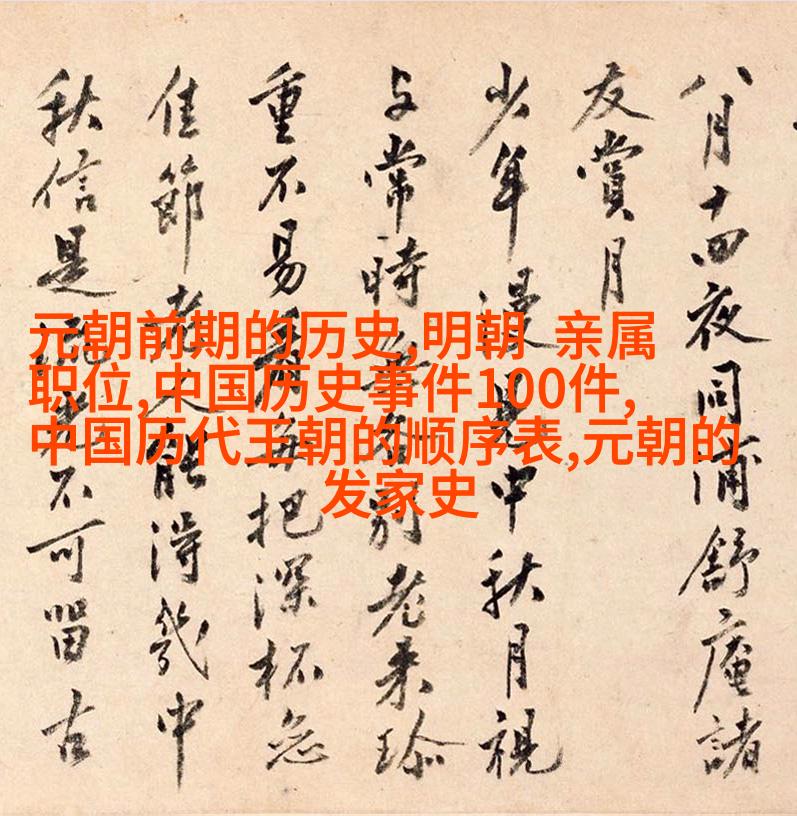 元朝前期的历史,明朝 亲属
职位,中国历史事件100件,
中国历代王朝的顺序表,元朝的
发家史
八月十四夜同浦舒庵諸
友賞月
少年漫見中秋月視
与常時分别老来珍
重不易每把深杯
佳節老人能得幾中
秋信是不可留古